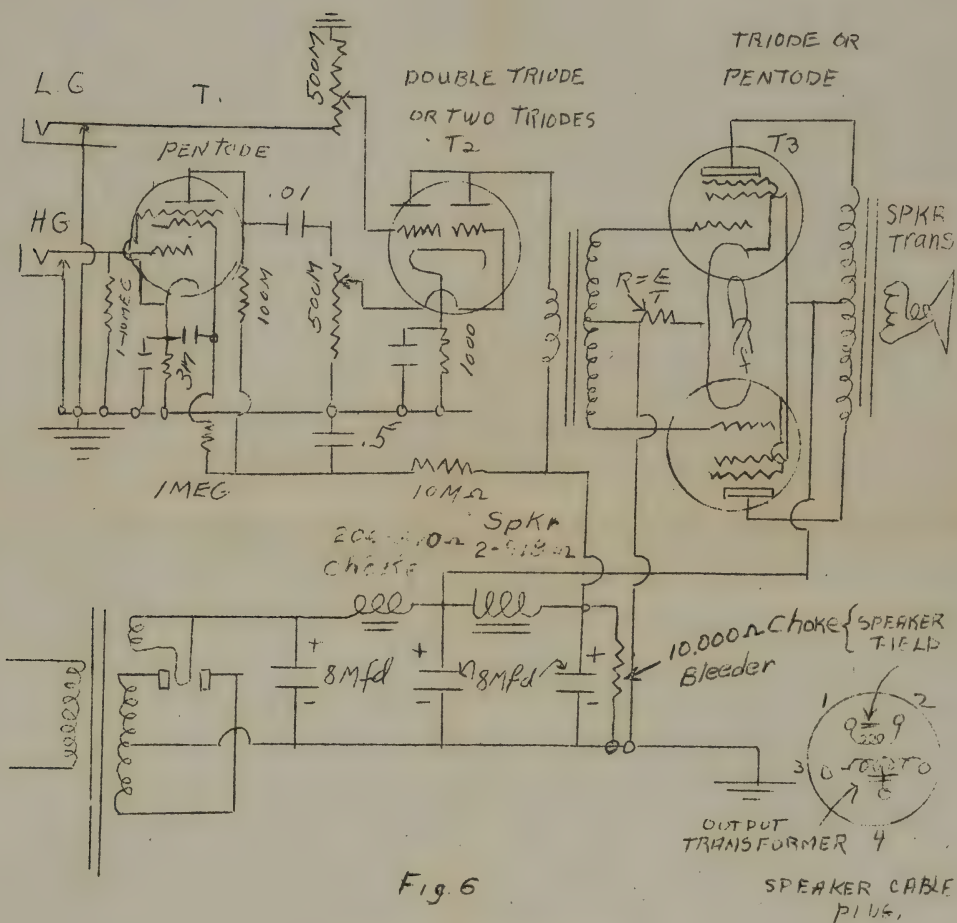 L.G
T.
500M
DOUBLE TRIODE
OR TWO TRIODES
T2
TRIODE OR
PENTODE
T3
PENTODE
.01
HG
1-10MEG
3M
100M
500M
1000
.5
R=E/I
SPKR
Trans
1MEG
10MΩ
Choke
Spkr
8Mfd
8Mfd
10,000Ω
Bleeder
Choke { SPEAKER
FIELD
1
2
3
4
OUTPUT
TRANSFORMER
Fig. 6
SPEAKER CABLE
PLUG.